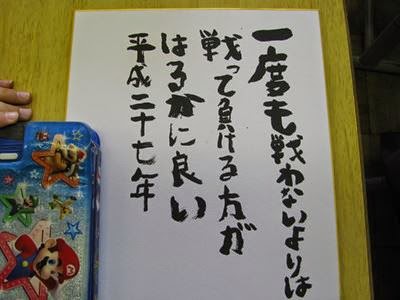 一度も戦わないよりは
戦って負ける方が
はるかに良い
平成二十七年